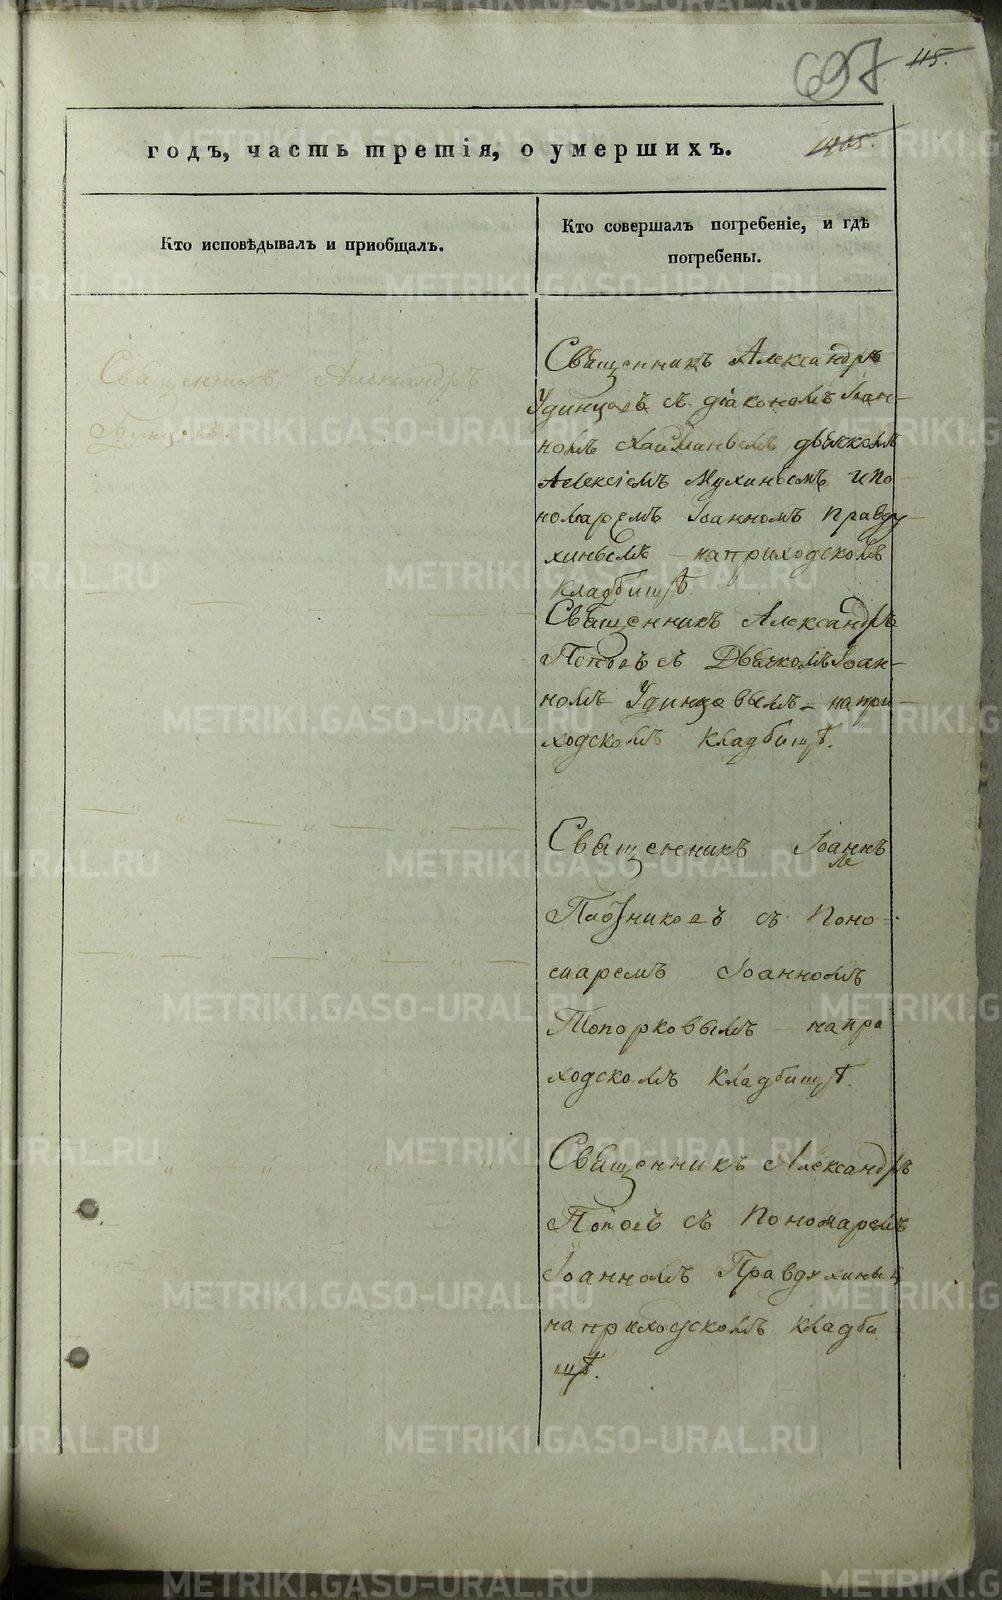 697 115.
годъ, часть третія, о умершихъ.
Кто исповѣдывалъ и приобщалъ.
Кто совершалъ погребеніе, и гдѣ
погребены.
Священникъ Александръ
Удинцовъ.
Священникъ Александръ
Удинцовъ съ діакономъ Іоан-
номъ дьячкомъ
Алексіемъ Мухинымъ и по
номаремъ Іоанномъ Правду
хинымъ на приходскомъ
кладбищѣ
Священникъ Александръ
Поповъ съ Дьячкомъ Іоан-
номъ Удинцовымъ на при-
ходскомъ кладбищѣ.
Священникъ Іоаннъ
Плотниковъ съ Поно-
маремъ Іоанномъ
Топорковымъ на при
ходскомъ кладбищѣ.
Священникъ Александръ
Поповъ съ Пономаремъ
Іоанномъ Правдухинымъ
на приходскомъ кладби
щѣ.
METRIKI.GASO-URAL.RU